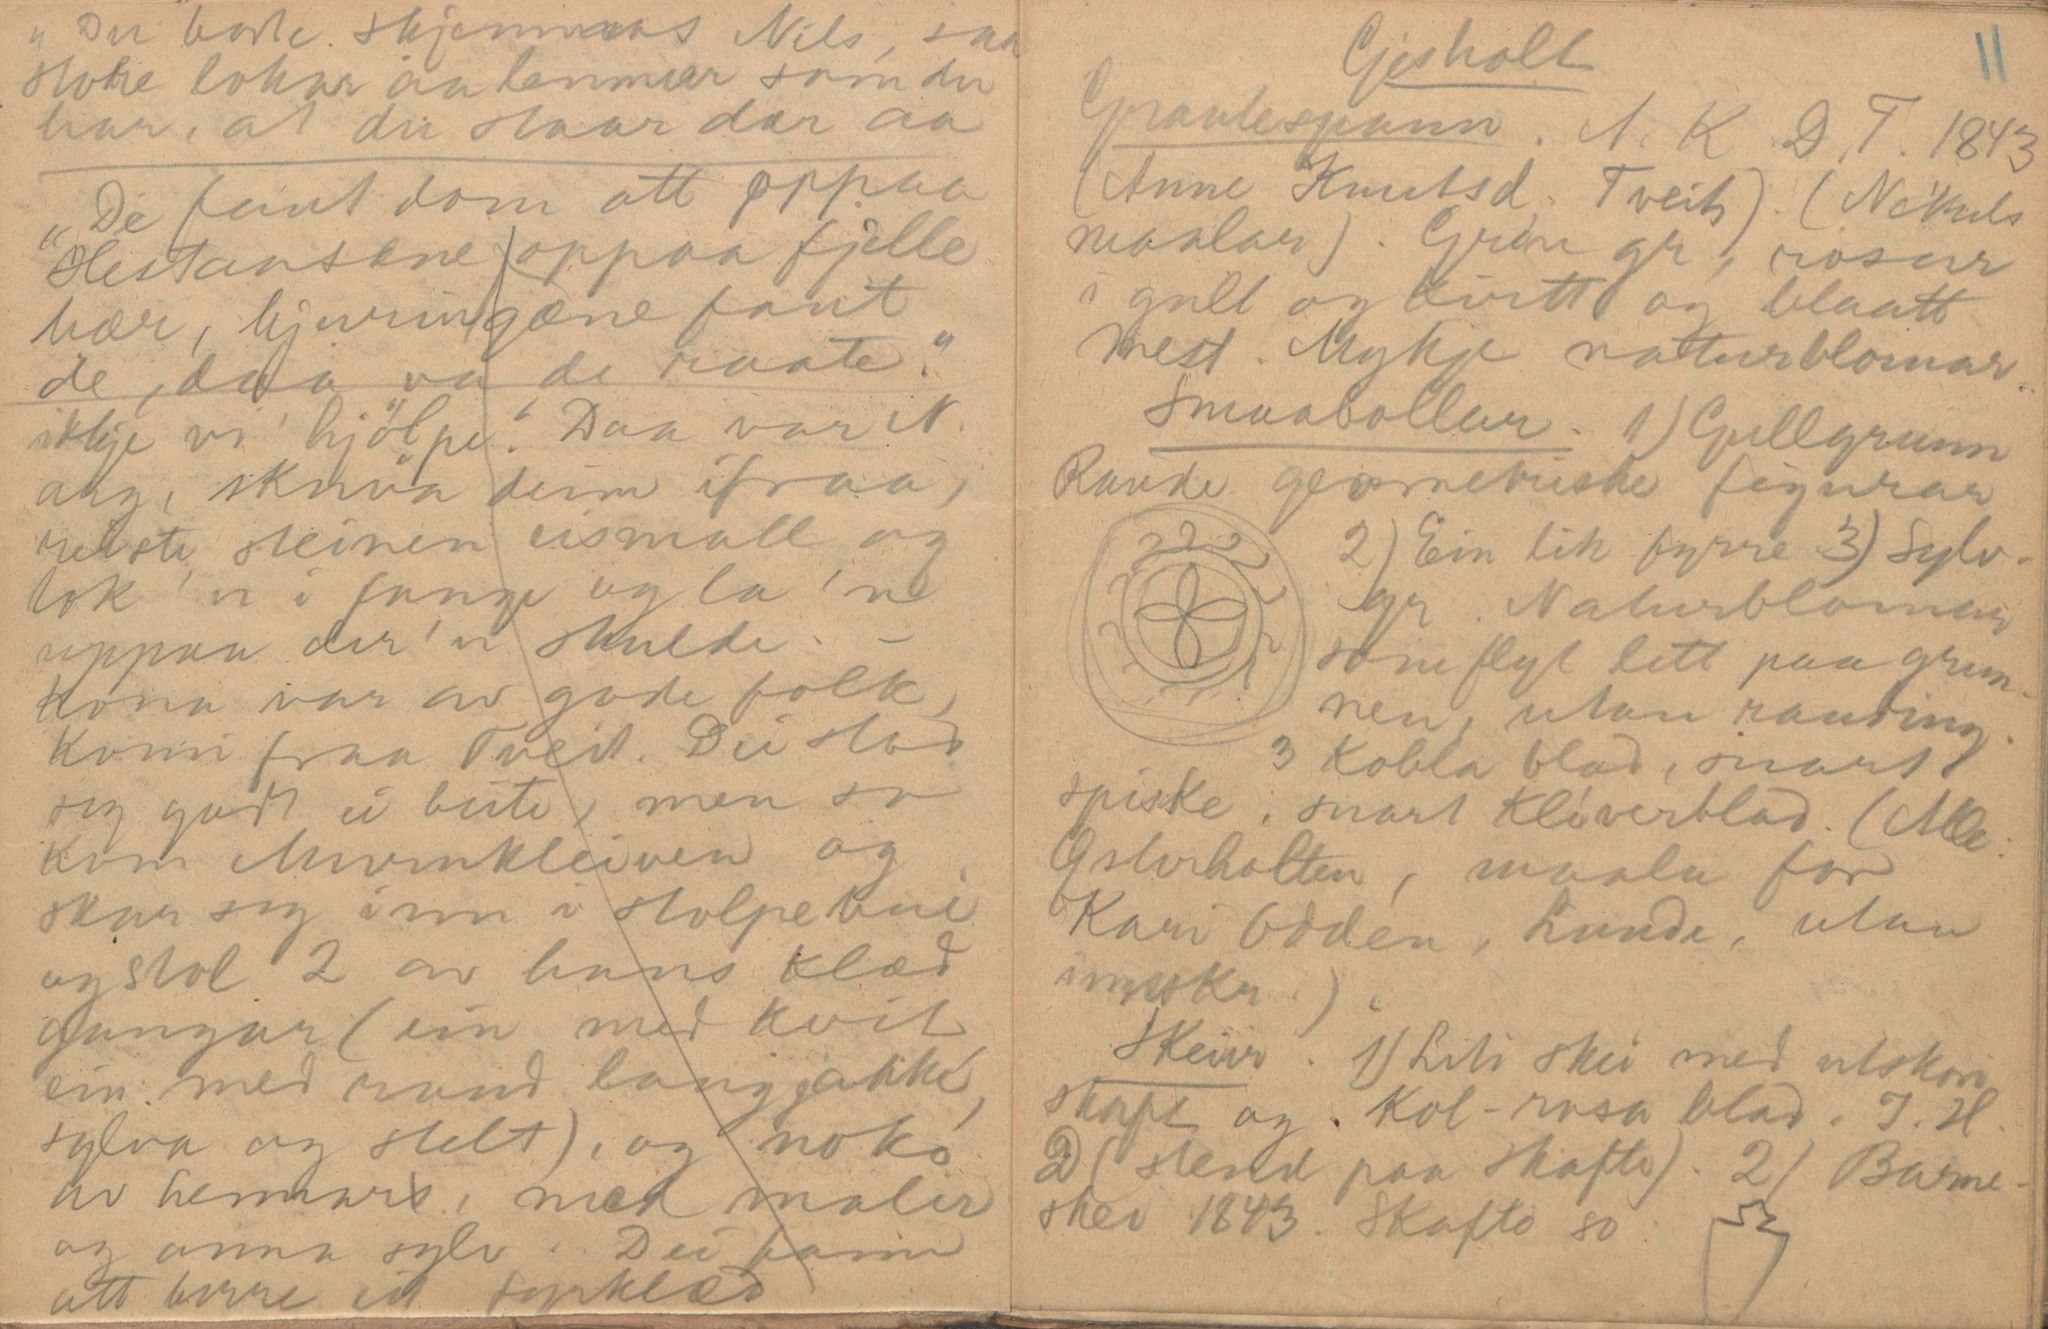 "Du bode skjemmas Nils, saa
store lokar aa lemmer som du
har, at du staar dær aa
"De fant dom att oppaa
Hestaasane, oppaa fjelle
hær, hjuringæne fant
de, daa va de raate."
ikkje vi hjölpe". Daa var N.
arg, skuva deim ifraa,
reiste steinen eismall og
tok 'n i fange og la 'ne
uppaa der 'n skulde. –
Kona var av gode folk,
kom fraa Tveit. Dei stod
seg godt ei beite, men so
kom Murukleiven og
skar seg inn i stolpebui
og stol 2 av hans klæd
gangar (ein med kvit,
ein med raud langjakke,
sylva og stelt), og noko
av hennars, med malir
og anna sylv. Dei fann
att berre eit fyrklæd
11
Gjesholt
Grautespann. A. K. D. T. 1843
(Anne Knutsd. Tveit). (Nikuls
maalar). Grön gr, rosur
i gult og kvitt og blaatt
mest. Mykje naturblomar.
Smaabollur. 1) Gullgrunn
Raude geometriske figurar
2) Ein lik fyrre 3) Sylv-
gr. Naturblomar
som flyt lett paa grun-
nen, utan randing.
3 kobla blad, snart
spiske, snart kliverblad. (Ale.
Österholten, maala for
Kari Odden, Lunde, utan
innskr.)
Skeiir. 1) Liti skei med utskori
skapt og. Kol-rosa blad. J. H.
D (stend paa skafte). 2) Barne-
skei 1843. Skafte so